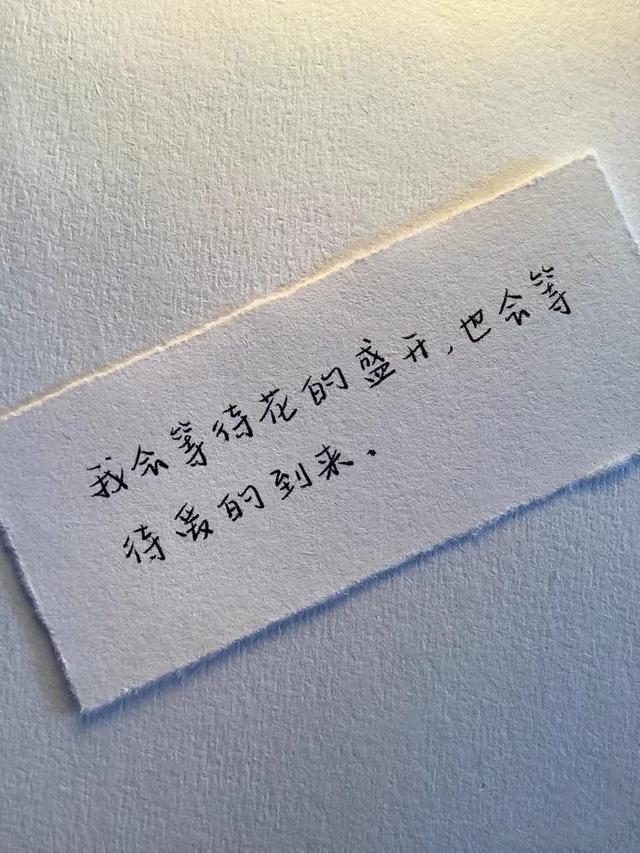 我会等待花的盛开，也会等
待爱的到来.